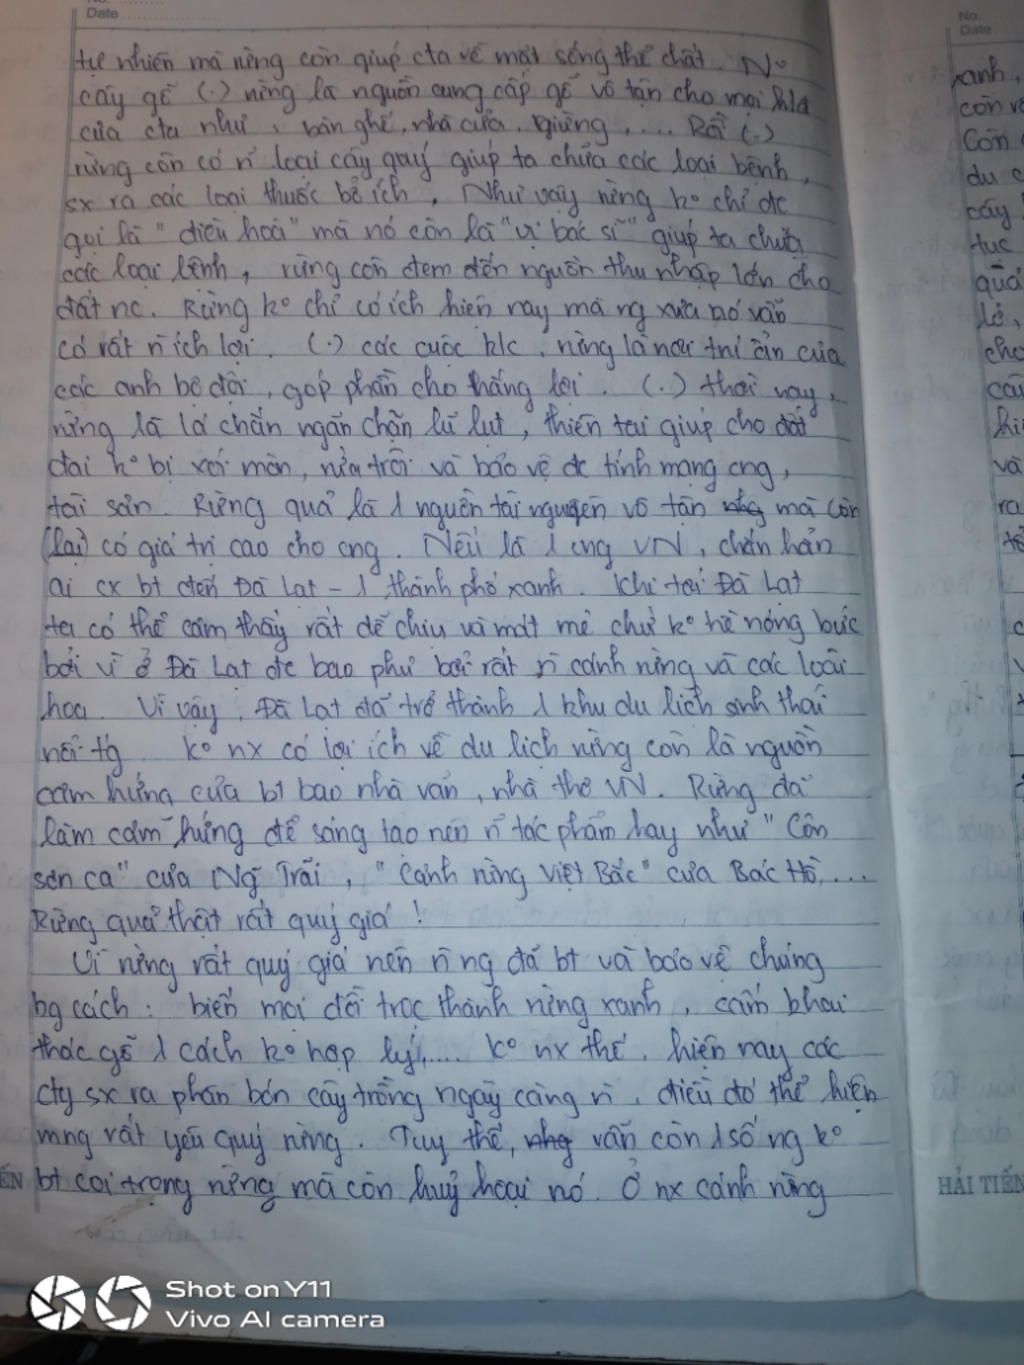 Date
tự nhiên mà rừng còn giúp cta về mặt sống thể chất. N°
cây gỗ (.) rừng là nguồn cung cấp gỗ vô tận cho mọi
của cta như, bàn ghế, nhà cửa, giường, .... Rồi (.)
rừng còn có n̄ loại cây quý giúp ta chữa các loại bệnh,
sx ra các loại thuốc bổ ích. Như vậy rừng k° chỉ đc
gọi là "điều hoà" mà nó còn là "vị bác sĩ" giúp ta chữa
các loại bệnh, rừng còn đem đến nguồn thu nhập lớn cho
đất nc. Rừng k° chỉ có ích hiện nay mà ng xưa nó vẫn
có rất n̄ ích lợi. (.) các cuộc k/c, rừng là nơi trú ẩn của
các anh bộ đội, góp phần cho thắng lợi. (.) thời nay,
rừng là lá chắn ngăn chặn lũ lụt, thiên tai giúp cho đất
đai k° bị xói mòn, rửa trôi và bảo vệ đc tính mạng cng,
tài sản. Rừng quả là 1 nguồn tài nguyên vô tận nhg mà còn
(lại) có giá trị cao cho cng. Nếu là 1 cng VN, chắn hẳn
ai cx bt đến Đà Lạt - 1 thành phố xanh. Khi tới Đà Lạt
ta có thể cảm thấy rất dễ chịu và mát mẻ chứ k° hề nóng bức
bởi vì ở Đà Lạt đc bao phủ bởi rất n̄ cánh rừng và các loài
hoa. Vì vậy, Đà Lạt đã trở thành 1 khu du lịch sinh thái
nổi tg. K° nx có lợi ích về du lịch rừng còn là nguồn
cảm hứng của bt bao nhà văn, nhà thơ VN. Rừng đã
làm cảm hứng để sáng tạo nên n̄ tác phẩm hay như "Côn
sơn ca" của Ng Trãi, "Cảnh rừng Việt Bắc" của Bác Hồ,...
Rừng quả thật rất quý giá!
Vì rừng rất quý giá nên n̄ ng đã bt và bảo vệ chúng
bg cách: biến mọi đồi trọc thành rừng xanh, cấm khai
thác gỗ 1 cách k° hợp lý,.... K° nx thế, hiện nay các
cty sx ra phân bón cây trồng ngày càng n̄, điều đó thể hiện
mng rất yêu quý rừng. Tuy thế, nhg vẫn còn 1 số ng k°
bt coi trọng rừng mà còn huỷ hoại nó. Ở nx cánh rừng
ẾN
No.
Date
còn
Còn
cây
tục
lở,
và
ra
HẢI TIẾN
Shot on Y11
Vivo AI camera